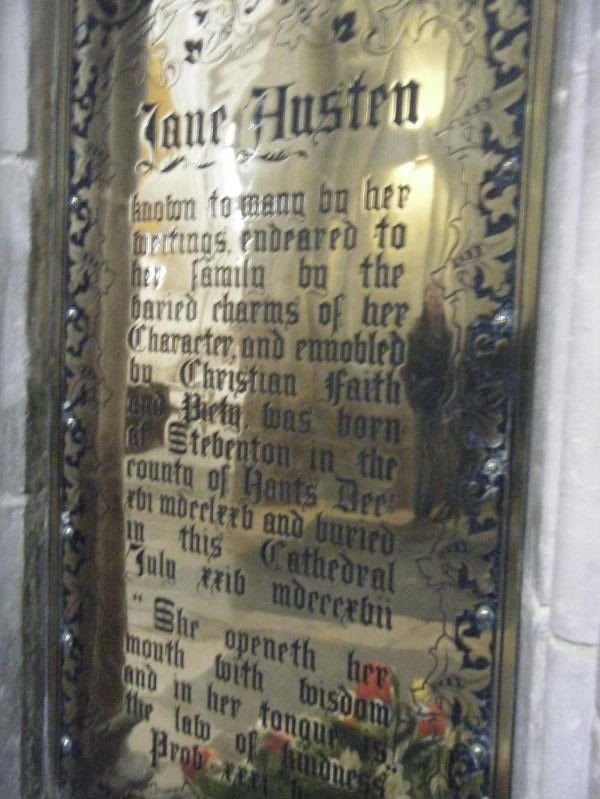 Jane Austen
known to many by her
writings, endeared to
her family by the
varied charms of her
Character, and ennobled
by Christian Faith
and Piety, was born
at Steventon in the
county of Hants Dec:
xvi mdcclxxv and buried
in this Cathedral
July xxiv mdcccxvii
"She openeth her
mouth with wisdom
and in her tongue is
the law of kindness"
Prov xxxi